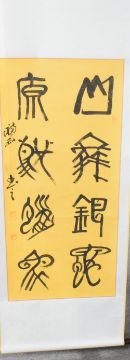 山舞銀蛇
原馳蠟象